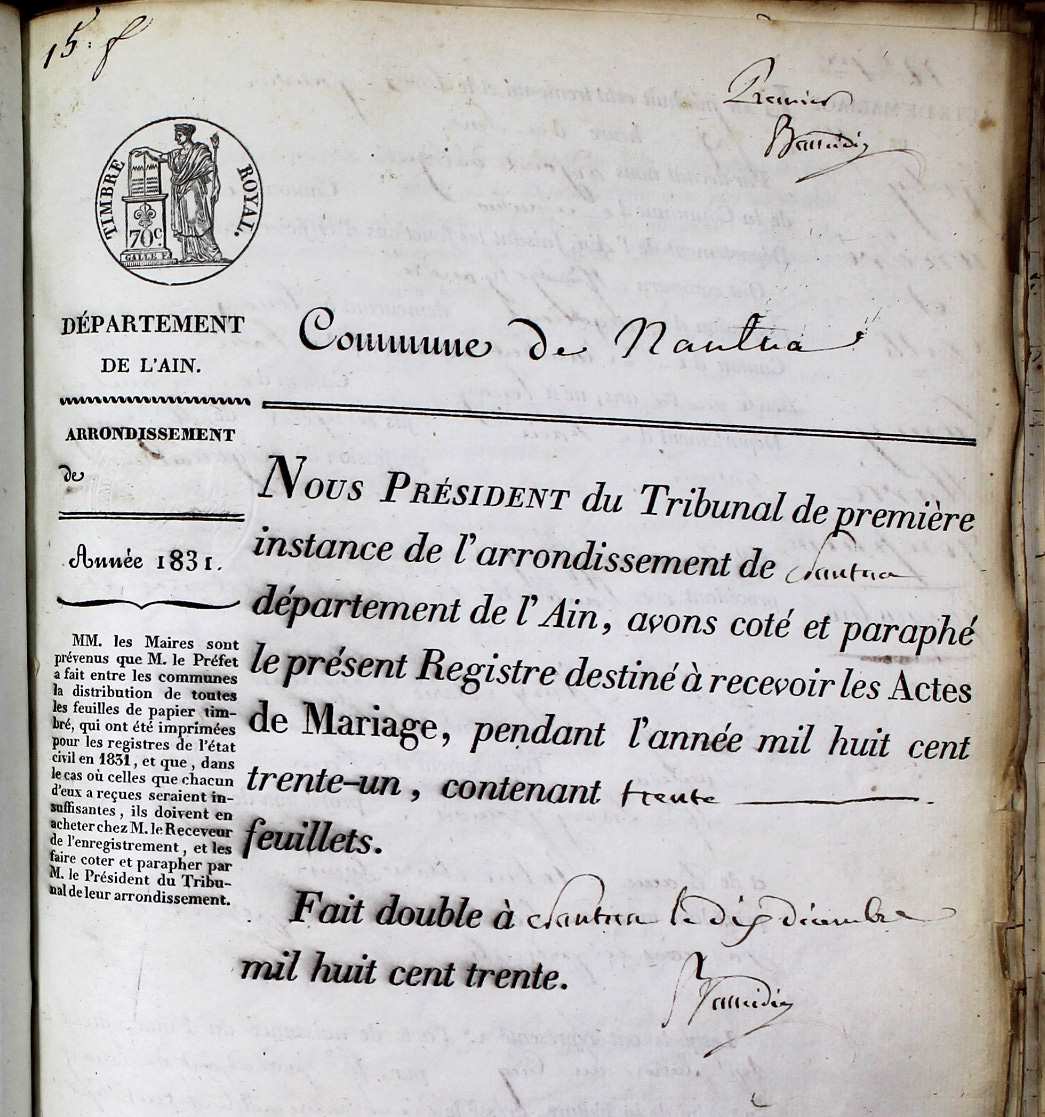 15. f
Premier
TIMBRE ROYAL.
70c
GALLE F.
DÉPARTEMENT
DE L'AIN.
ARRONDISSEMENT
de
Année 1831.
MM. les Maires sont
prévenus que M. le Préfet
a fait entre les communes
la distribution de toutes
les feuilles de papier tim-
bré, qui ont été imprimées
pour les registres de l'état
civil en 1831, et que, dans
le cas où celles que chacun
d'eux a reçues seraient in-
suffisantes, ils doivent en
acheter chez M. le Receveur
de l'enregistrement, et les
faire coter et parapher par
M. le Président du Tribu-
nal de leur arrondissement.
Commune de Nantua
NOUS PRÉSIDENT du Tribunal de première
instance de l'arrondissement de Nantua
département de l'Ain, avons coté et paraphé
le présent Registre destiné à recevoir les Actes
de Mariage, pendant l'année mil huit cent
trente-un, contenant trente
feuillets.
Fait double à Nantua le dix décembre
mil huit cent trente.